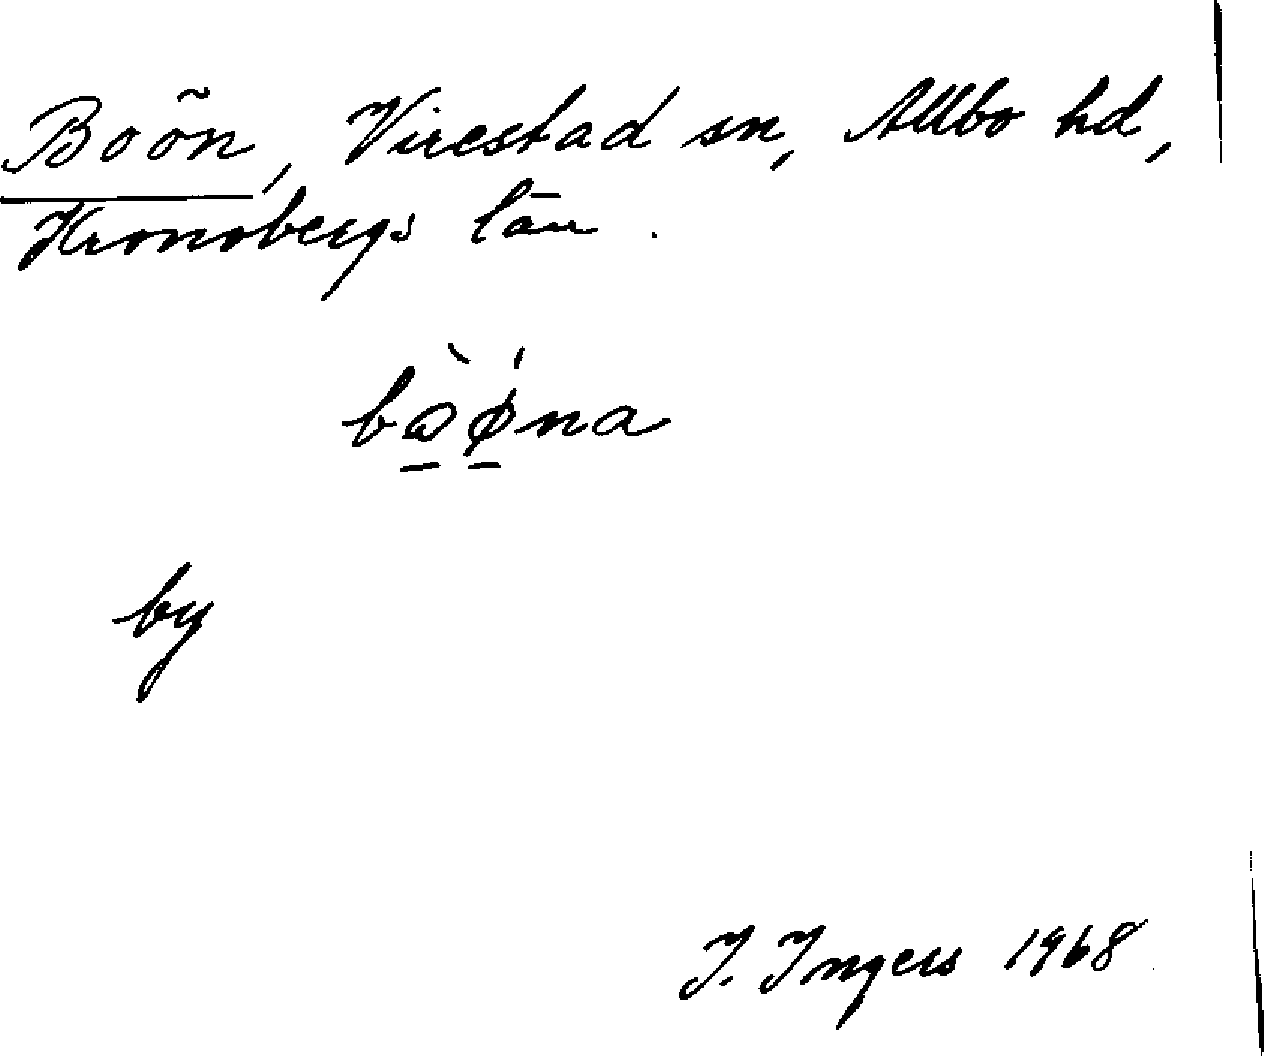 Boön, Virestad sn, Allbo hd,
Kronobergs län.
bὼǿna
by
I. Ingers 1968